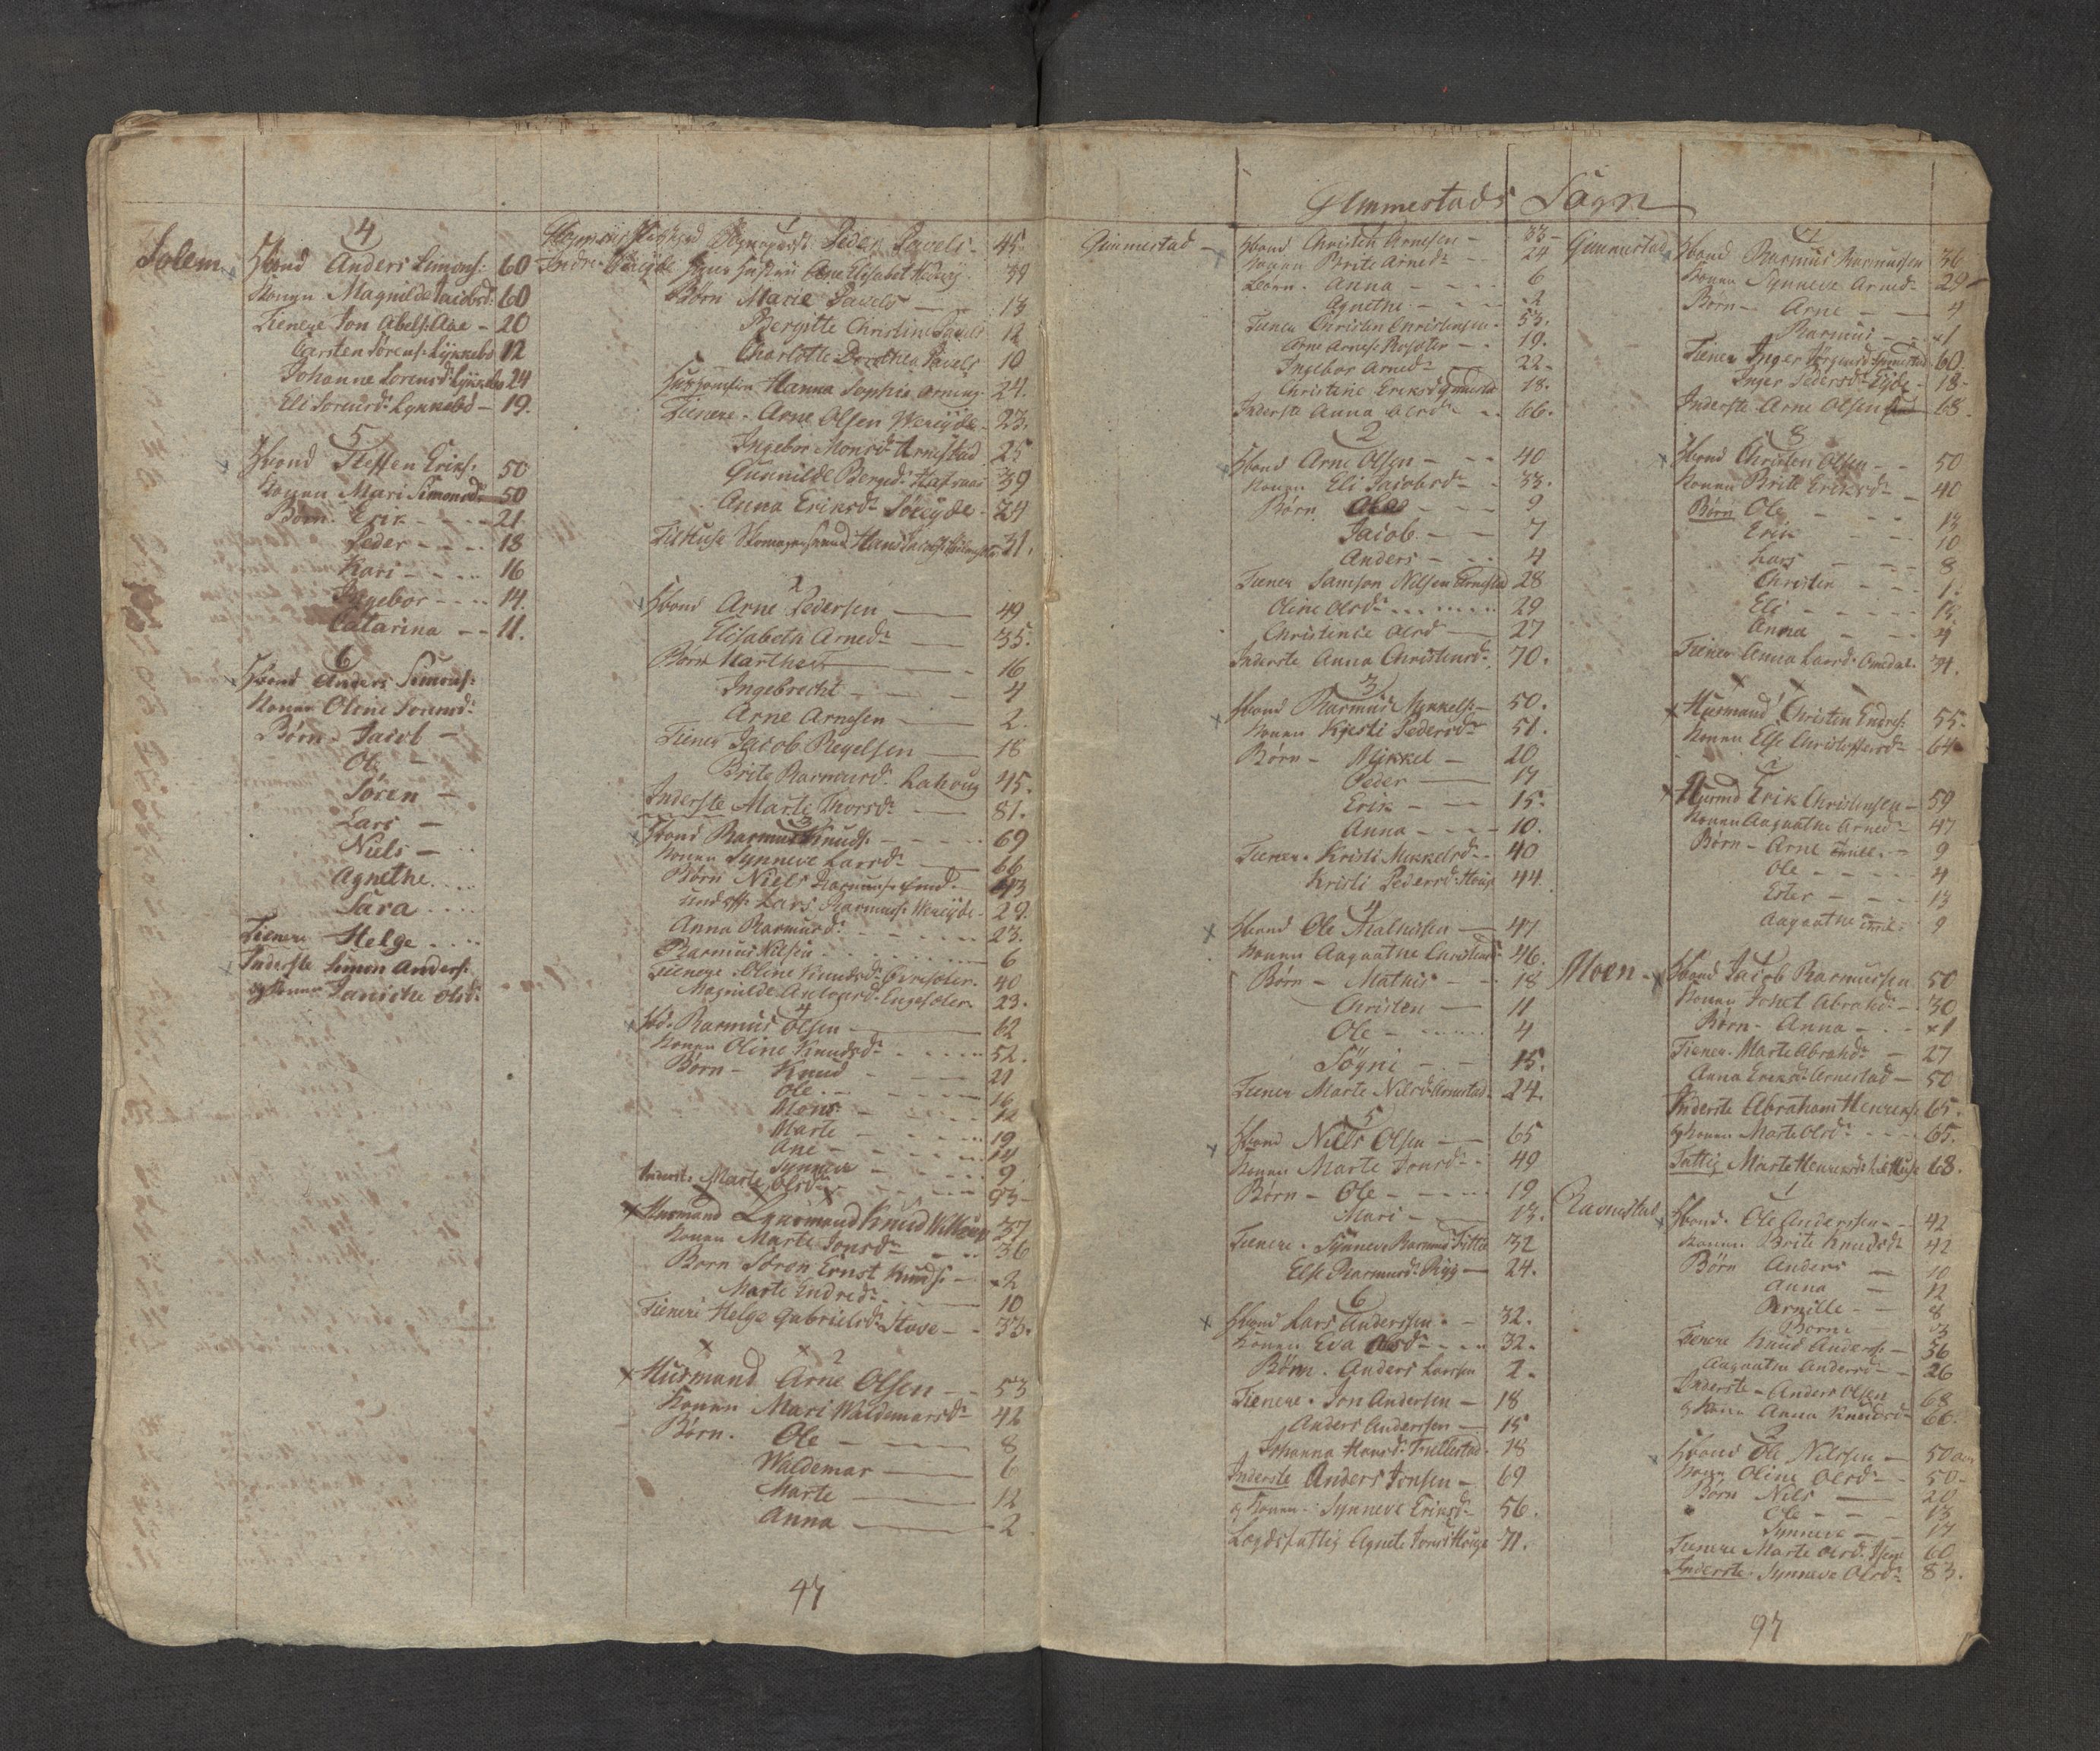 Solem
4
Hbond Anders Simons: 60
Konen Magnilde Jacobsd: 60
Tienere Jon Abels: Aae - 20
Carsten Sørens: Lynnebø 12
Johanne Sorensd: Lynnebø 24
Eli Sorensd: Lynnebø - 19.
5
Hbond Steffen Eriks: 50
Konen Mari Simonsd: 50
Børn. Erik - - - 21
Peder - - - 18
Kari - - - 16
Ingebor - - - 14.
Catarina - - 11.
6
Hbond Anders Simons:
Konen Oline Sorensd:
Børn - Jacob -
Ole -
Søren -
Lars -
Niels -
Agnethe....
Sara....
Tienere Helge....
Inderste Simon Anders:
og Konen Olsd:
1
Indre Sogneprest Peder Pavels - 45.
Elisabet Hedvig 39
Børn Marie Pavels - 13
Bergitte Christine Pavels 12
Charlotte Dorothea Pavels 10
Hanna Sophia 24.
Tienere - Arne Olsen Wereyde - 23.
Ingebor Monsd: Arnestad 25
Gunnilde Berned: 39
Anna Eriksd: Søreyde - 24
Hans 31.
2
Hbond Arne Pedersen - 49
Elisabeth Arned: - 35.
Børn Marthe - 16
Ingebrecht - - - 4
Arne Arnesen - 2.
Tiener Jacob - 18
Brite Rasmusd. 45.
Inderste Marte Thorsd: - 81.
3
Hbond Rasmus Knuds: - - - 69
Konen Synneve Larsd: - 66
Børn Niels Rasmus: 43
Lars Rasmus: Wereyde - 29.
Anna Rasmusd: - - - 23.
Rasmus Nilsen - - - 6
Tienere Oline Knudsd: 40
Magnilde 23.
4
Hbd. Rasmus Olsen - 62
Konen Oline Knudsd: - - - 52.
Børn - Knud - - 21
Ole - - - 16
Mons - - - 12
Marte - - - 19
Ane - - - 14
Synneve - - - 9
Inderst. Marte Olsd: - - - 93 -
Husmand Knud 37
Konen Marte Jonsd: - - 36
Born Søren Ernst Knuds: - 2
Marte Endred: - 10
Tienere Helge Gabrielsd: Hove - - 33.
2
Husmand Arne Olsen - - 53
Konen Mari Waldemarsd: 42
Børn. Ole - 8
Waldemar - 6
Marte - 12
Anna - 2
47
Gimmestads Sogn
Gimmestad -
Hbond Christen Arnesen - 33 -
Konen Brite Arned: - - 24
Børn. Anna - - - 6
Agnethe - - - 2
Tiener Christen Christensen - 53.
Arne Arnes: - - 19.
Ingebor Arned: 22 -
Christine Eriksd: 18.
Inderste Anna Olsd: - - 66.
2
Hbond Arne Olsen - - - 40
Konen Eli Jacobsd: - - 33.
Børn Ole - - - 9
Jacob - - 7
Anders - - - 4
Tiener Samson Nilsen Arnestad 28
Oline Olsd: - - - 29
Christence Olsd - 27
Inderste Anna Christensd: 70.
3
Hbond Rasmus Mykkels: - 50.
Konen Kjesti Pedersd: 51.
Børn - Mykkel - 20
Peder - 17
Erik - - 15.
Anna - - - 10.
Tienere. Kristi Mekkelsd: - 40
Kristi Pedersd: 44.
4
Hbond Ole Mathisen - 47
Konen Aagaathe Christensd: 46.
Børn - Mathis - - 18
Christen - 11
Ole - - - 4
Søgni - - - 15.
Tiener Marte Nilsd: Arnestad. 24.
5
Hbond Niels Olsen - - 65
Konen Marte Jonsd: - 49
Børn - Ole - - - 19
Mari - 13.
Tienere. Synneve Rasmusd: 32
Else Rasmusd: Rygg - 24.
6
Hbond Lars Anderssen - - 32.
Konen Eva Olsd: - - - 32.
Børn. Anders Larsen 2.
Tienere - Jon Andersen - 18
Anders Anderssen - 15
Johanna Hansd: 18
Inderste Anders Jonsen - 69
og Konen - Synneve Eriksd: 56.
Lægdsfattig Agnete Jonsd: Houge 71.
Gimmestad
7
Hbond Rasmus Rasmussen 36
Konen Synneve Arned: 29 -
Børn - Arne - - 4
Rasmus - - 1
Tiener Inger 60.
Inger Pedersd: Eyde - 18 -
Inderste Arne Olsen 68.
8
Hbond Christen Olsen - - 50
Konen Brite Eriksd: - 40
Børn Ole - - - 13
Erik - - 10
Lars - - - 8
Christen - - - 1.
Eli - - - 13.
Anna - - - 4
Tiener Anna Larsd: 31.
1
Husmand Christen Endres: 55.
Konen Else Christoffersd: 64
2
Husmd Erik Christensen - 59
Konen Aagaathe Arned: 47
Børn - Arne 9
Ole - - - 4
Ester - - - 13
Aagaathe 9
Moen -
Hbond Jacob Rasmussen 50
Konen Abrahd: - 30
Børn - Anna - - - 1
Tiener. Marte Abrahd: - 27
Anna Eriksd: Arnestad - 50
Inderste Abraham 65.
og Konen Marte Olsd: - - - 65.
Fattig Marte 68.
Ravnestad
1
Hbond. Ole Anderssen - - 42
Konen. Brite Knudsd: 42
Børn Anders - 10
Anna - 12
Pernille - - 8
Tienere Knud Anders: - 56
Aagaathe Andersd: - 26
Inderste - Anders Olsen 68
og Konen Anna Knudsd: 66.
2
Hbond Ole Nilssen - 50
Konen Oline Olsd: - 50 -
Børn Nils - 20
Ole - - - 13
Synneve - - 17
Tienere Marte Olsd: 60
Inderste. Synneve Olsd: 83.
97